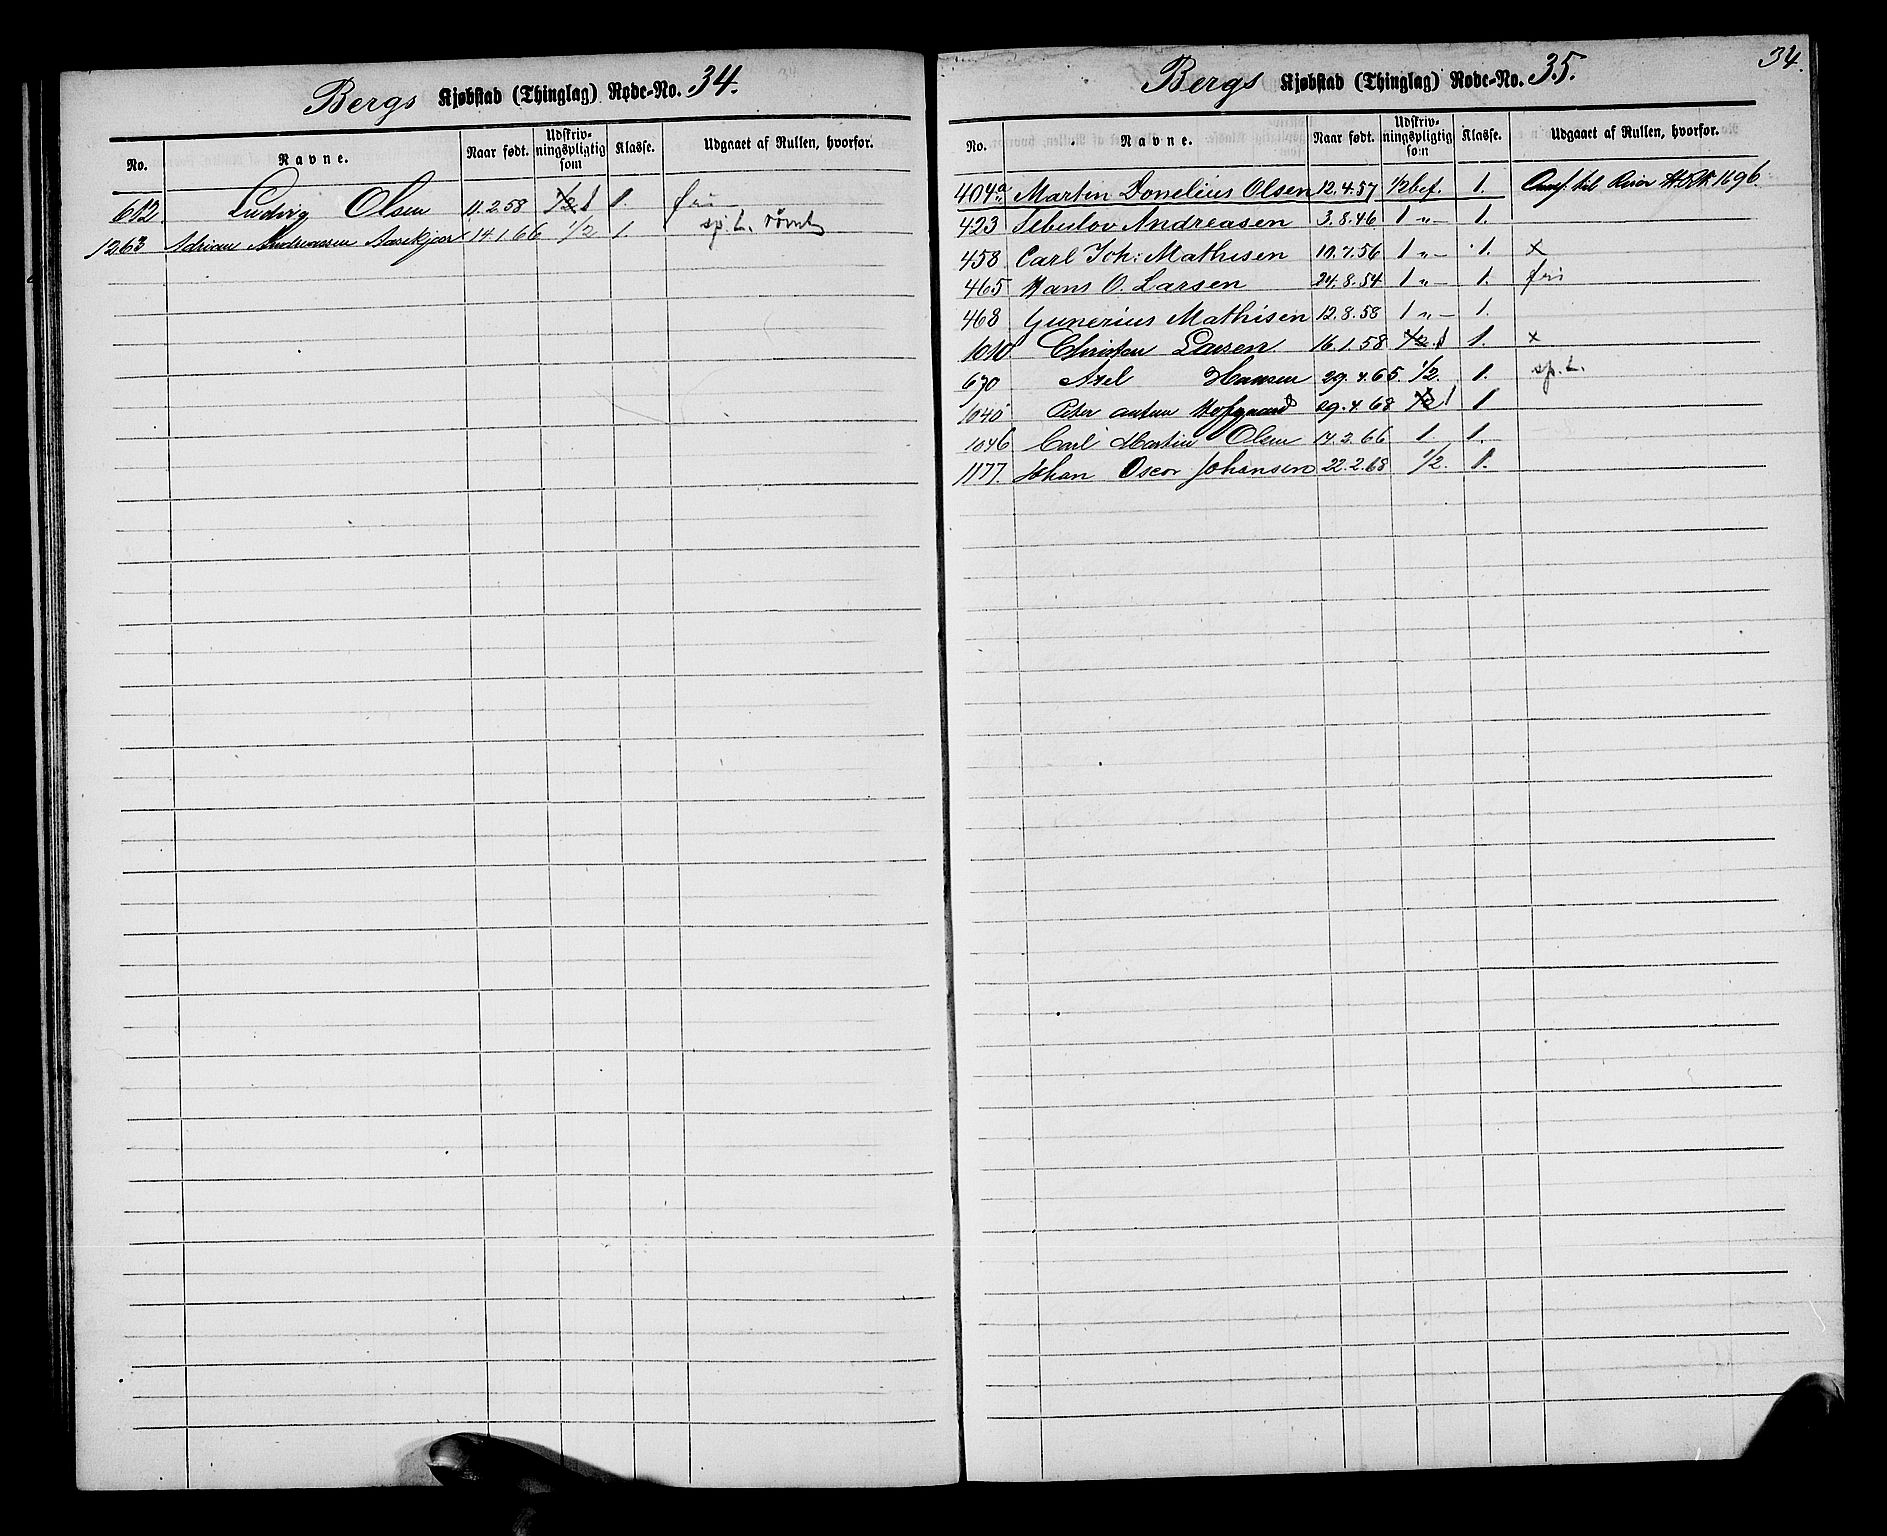 Bergs Kjøbstad (Thinglag) Rode-No. 34.
No. Navne. Naar født. Udskriv-ningspligtig som Klasse. Udgaaet af Rullen, hvorfor.
612 Ludvig Olsen 11.2.58 1/2 1 1. fri
1263 Adrian Andreassen Aasekjær 14.1.66 1/2 1 sp. L. rømt
34.
Bergs Kjøbstad (Thinglag) Rode-No. 35.
No. Navne. Naar født. Udskriv-ningspligtig som Klasse. Udgaaet af Rullen, hvorfor.
404a Martin Donelius Olsen 12.4.57 1/2 bef. 1. til 1696.
423 Andreasen 3.8.46 1 „ — 1.
458 Carl Joh: Mathisen 10.7.56 1 „ — 1. x
465 Hans O. Larsen 24.8.54 1 „ — 1. fri
468 Gunerius Mathisen 12.8.58 1 „ — 1.
1010 Christen Larsen 16.1.58 1/2 1 1. x
670 Axel Hansen 29.4.65 1/2. 1. sp. L.
1040 Peter Anton Hofgaard 29.4.68 1/2 1 1
1046 Carl Martin Olsen 17.2.66 1. 1.
1177. Johan Oscar Johansen 22.2.68 1/2. 1.